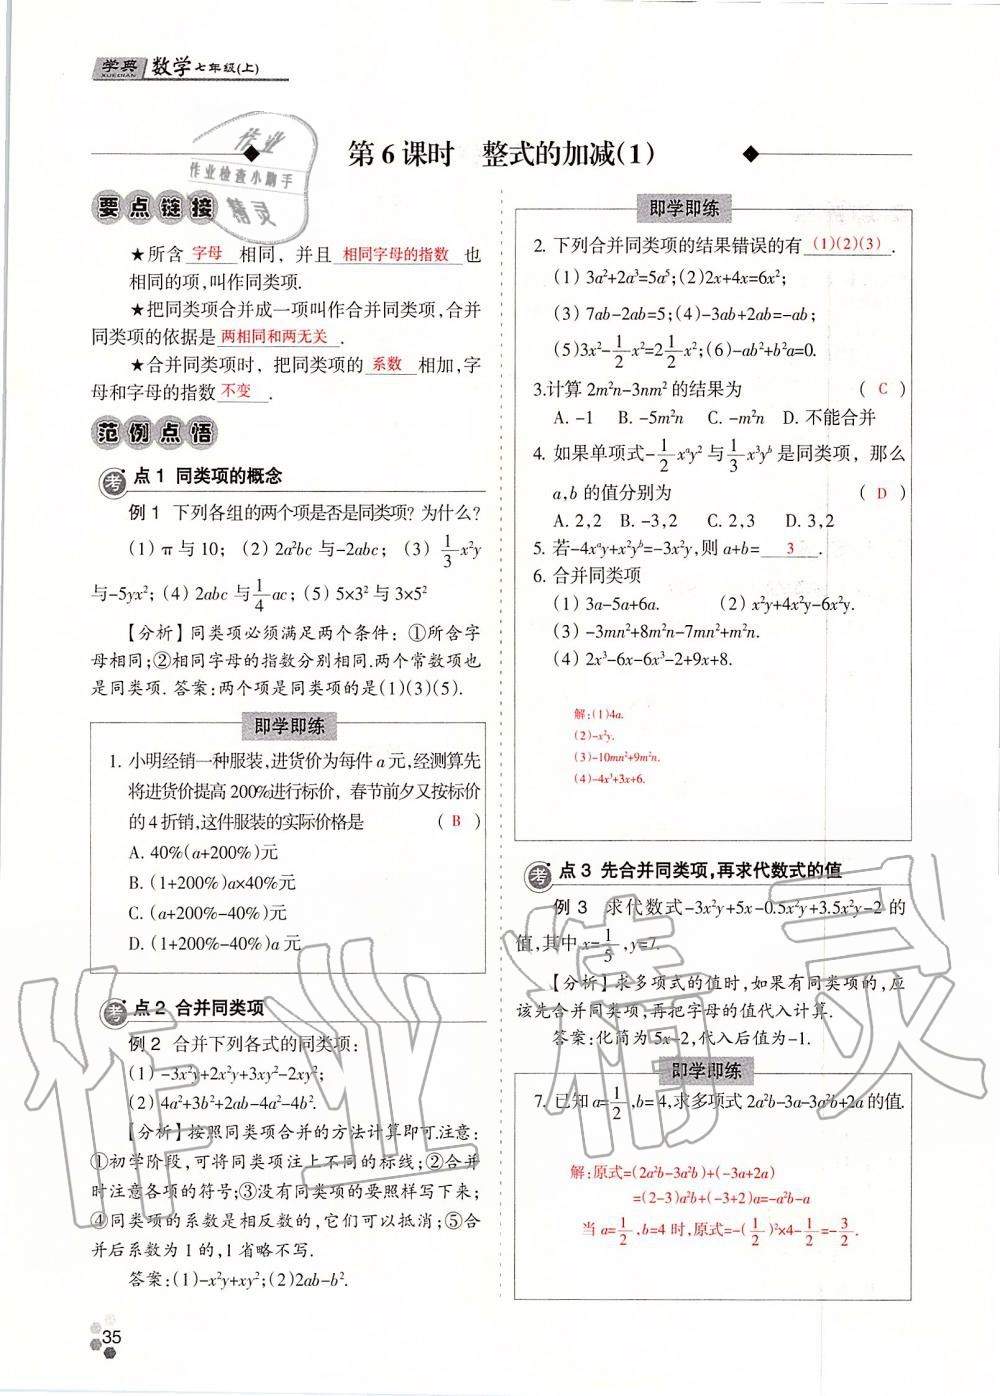 学典 XUEDIAN 数学 七年级(上)
第6课时 整式的加减(1)
作业
作业检查小助手
精灵
要点链接
★所含 字母 相同，并且 相同字母的指数 也
相同的项,叫作同类项.
★把同类项合并成一项叫作合并同类项,合并
同类项的依据是 两相同和两无关 .
★合并同类项时，把同类项的 系数 相加,字
母和字母的指数 不变 .
范例点悟
考点1 同类项的概念
例1 下列各组的两个项是否是同类项? 为什么?
(1) π与10; (2) 2a²bc与-2abc; (3) 1/3x²y
与-5yx²; (4) 2abc与1/4ac; (5) 5×3²与3×5²
【分析】同类项必须满足两个条件：①所含字
母相同;②相同字母的指数分别相同.两个常数项也
是同类项. 答案:两个项是同类项的是(1)(3)(5).
即学即练
1. 小明经销一种服装,进货价为每件a元,经测算先
将进货价提高200%进行标价，春节前夕又按标价
的4折销,这件服装的实际价格是 ( B )
A. 40%(a+200%)元
B. (1+200%)a×40%元
C. (a+200%-40%)元
D. (1+200%-40%)a元
考点2 合并同类项
例2 合并下列各式的同类项：
(1) -3x²y+2x²y+3xy²-2xy²;
(2) 4a²+3b²+2ab-4a²-4b².
【分析】按照同类项合并的方法计算即可.注意：
①初学阶段,可将同类项注上不同的标线;②合并
时注意各项的符号;③没有同类项的要照样写下来;
④同类项的系数是相反数的,它们可以抵消;⑤合
并后系数为1的,1省略不写.
答案:(1)-x²y+xy²;(2)2ab-b².
35
即学即练
2. 下列合并同类项的结果错误的有 (1)(2)(3) .
(1) 3a²+2a³=5a⁵;(2)2x+4x=6x²;
(3) 7ab-2ab=5;(4)-3ab+2ab=-ab;
(5)3x²-1/2x²=2 1/2x²;(6)-ab²+b²a=0.
3.计算2m²n-3nm²的结果为 ( C )
A. -1 B. -5m²n C. -m²n D. 不能合并
4. 如果单项式-1/2xᵃy²与1/3x³yᵇ是同类项，那么
a,b的值分别为 ( D )
A. 2,2 B. -3,2 C. 2,3 D. 3,2
5. 若-4xᵃy+x²yᵇ=-3x²y,则a+b= 3 .
6. 合并同类项
(1) 3a-5a+6a. (2) x²y+4x²y-6x²y.
(3) -3mn²+8m²n-7mn²+m²n.
(4) 2x³-6x-6x³-2+9x+8.
解:(1)4a.
(2)-x²y.
(3)-10mn²+9m²n.
(4)-4x³+3x+6.
考点3 先合并同类项,再求代数式的值
例3 求代数式-3x²y+5x-0.5x²y+3.5x²y-2的
值,其中x=1/5,y=7.
【分析】求多项式的值时,如果有同类项的,应
该先合并同类项;再把字母的值代入计算.
答案:化简为5x-2,代入后值为-1.
即学即练
7. 已知a=1/2,b=4,求多项式2a²b-3a-3a²b+2a的值.
解:原式=(2a²b-3a²b)+(-3a+2a)
=(2-3)a²b+(-3+2)a=-a²b-a
当a=1/2,b=4时,原式=-(1/2)²×4-1/2=-3/2.
作业精灵